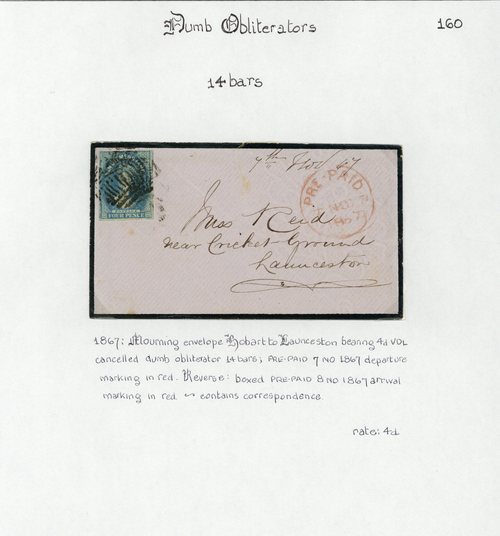 Dumb Obliterators
160
14 bars
7th Nov 67
FOUR PENCE
PRE-PAID
7
NO
1867
Miss Reid
near Cricket Ground
Launceston
1867: Mourning envelope Hobart to Launceston bearing 4d VDL
cancelled dumb obliterator 14 bars; PRE-PAID 7 NO 1867 departure
marking in red. Reverse: boxed PRE-PAID 8 NO 1867 arrival
marking in red ~ contains correspondence.
rate: 4d